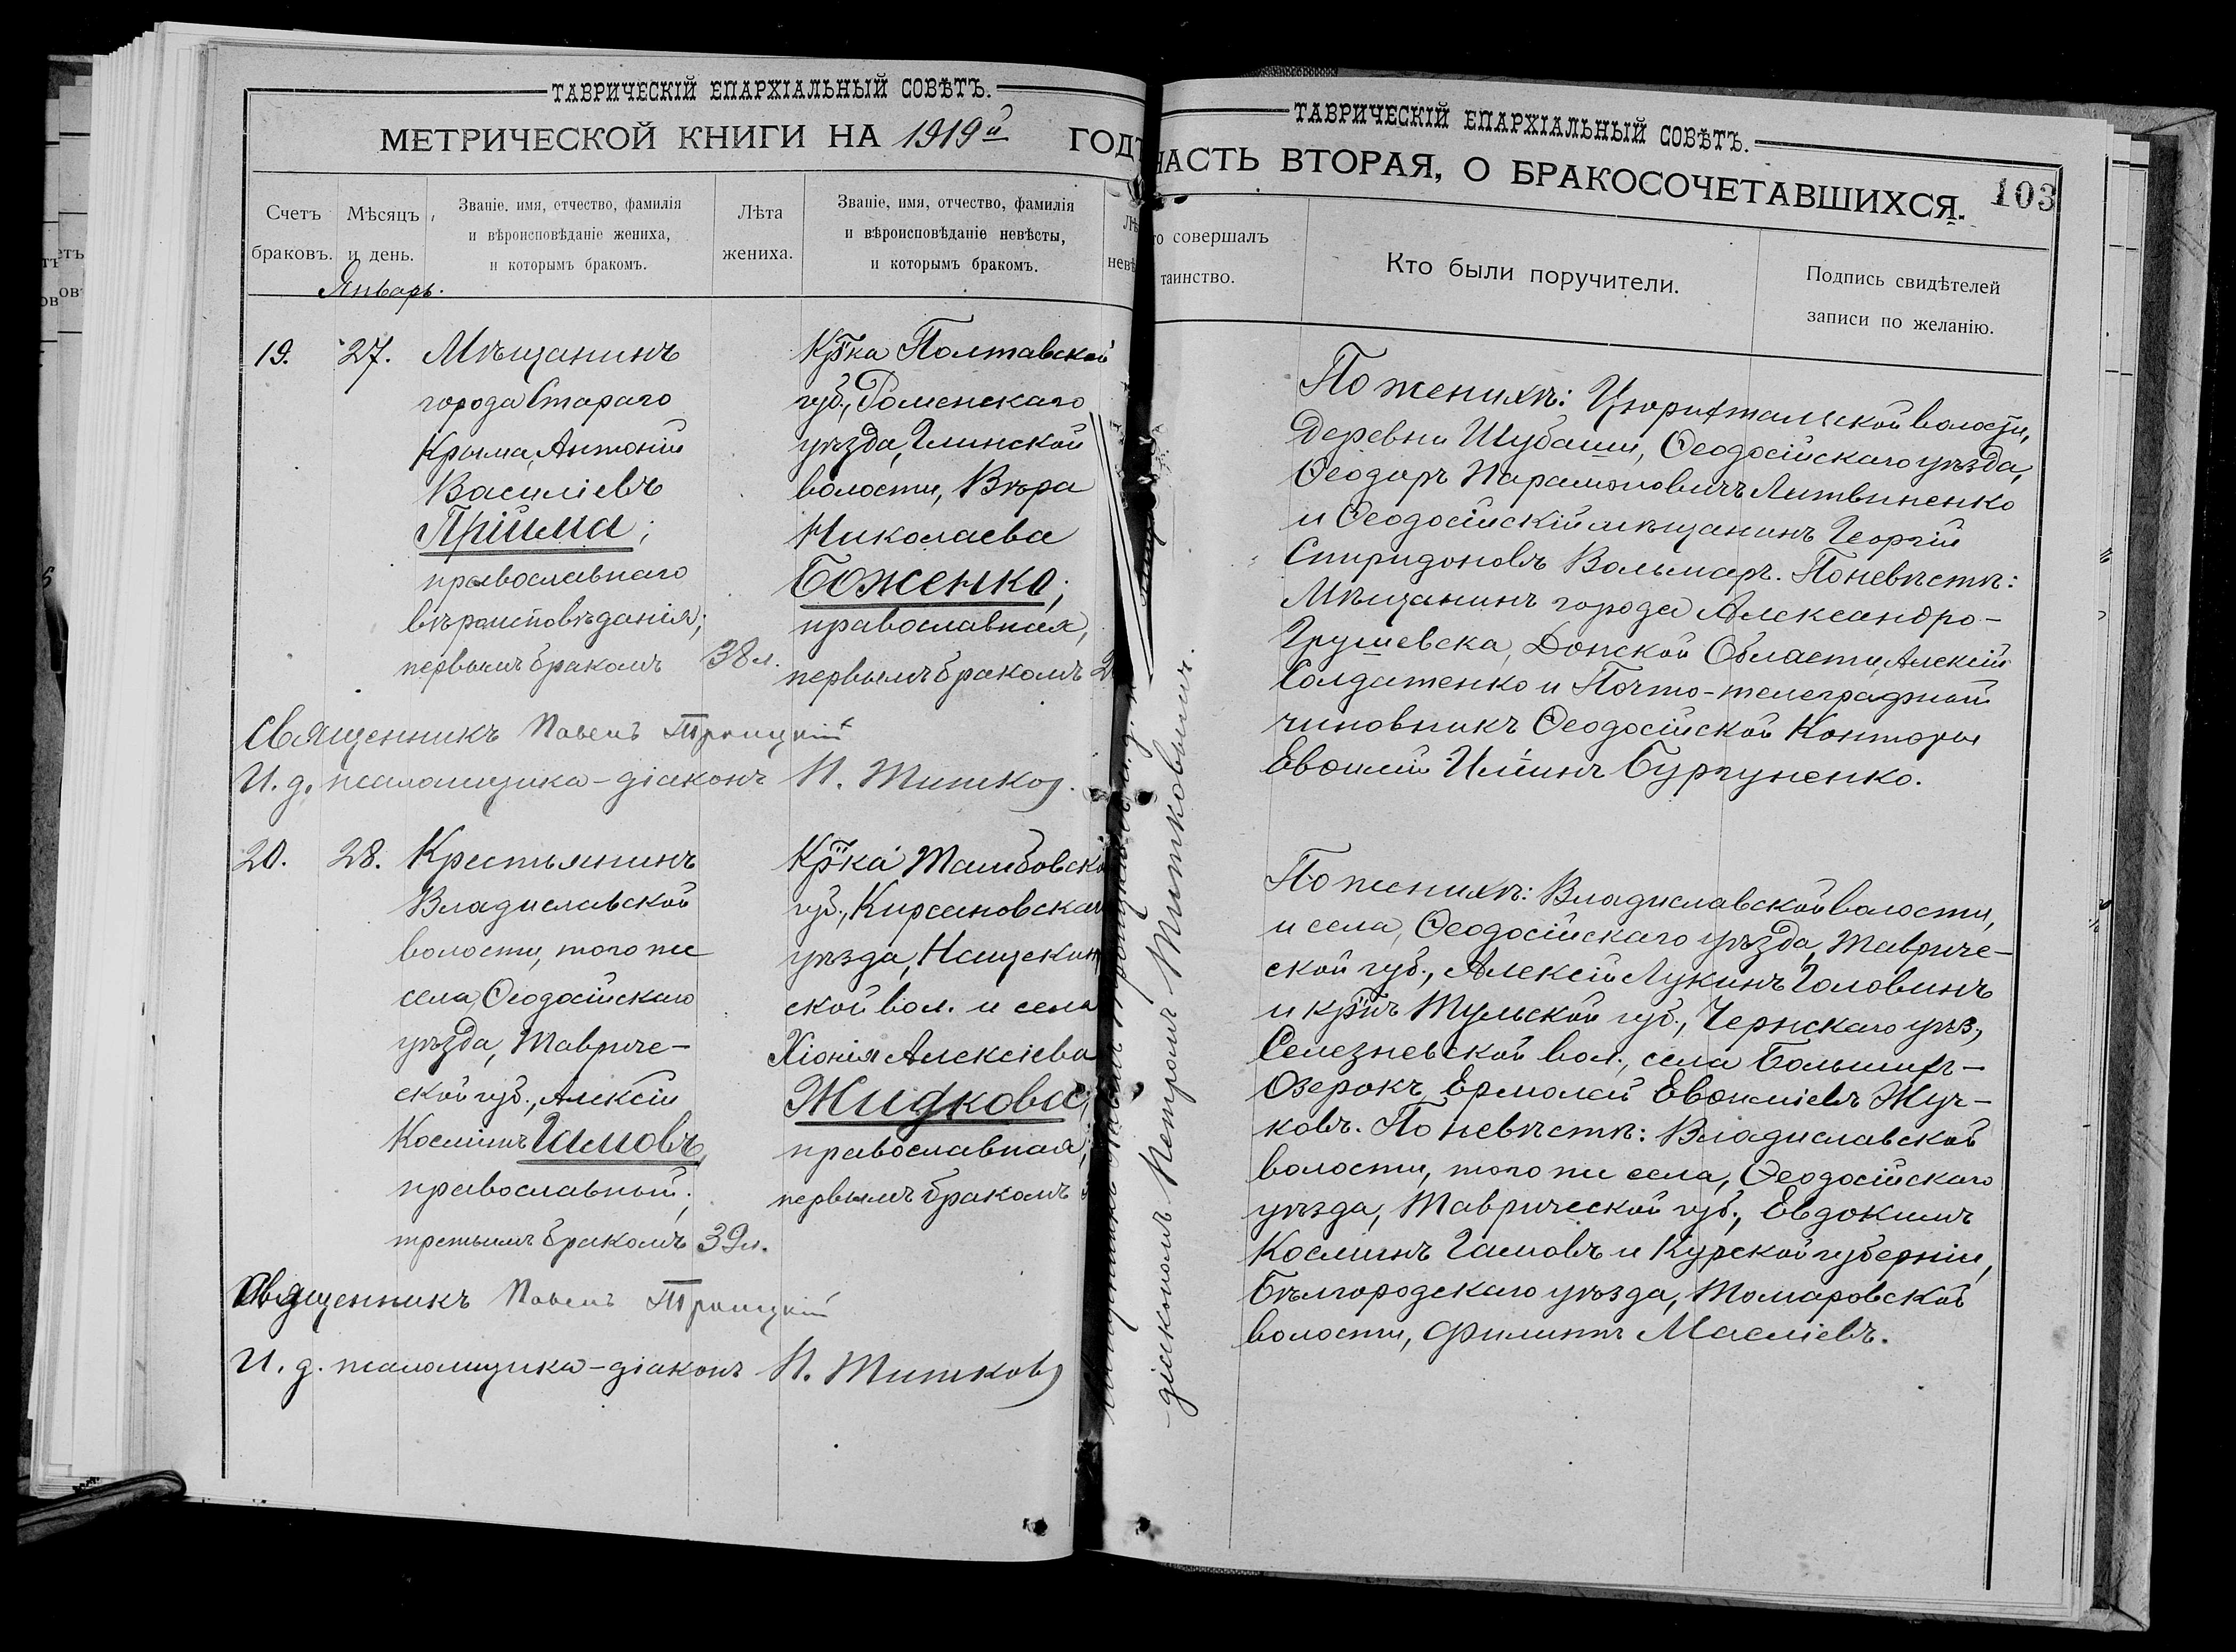 ТАВРИЧЕСКІЙ ЕПАРХІАЛЬНЫЙ СОВѢТЪ.
МЕТРИЧЕСКОЙ КНИГИ НА 1919й ГОДЪ
Счетъ браковъ.
Мѣсяцъ и день.
Званіе, имя, отчество, фамилія
и вѣроисповѣданіе жениха,
и которымъ бракомъ.
Лѣта
жениха.
Званіе, имя, отчество, фамилія
и вѣроисповѣданіе невѣсты,
и которымъ бракомъ.
Январь.
19.
27.
Мѣщанинъ
города Стараго
Крыма, Антоній
Василіевъ
Прійма;
православнаго
вѣроисповѣданія;
первымъ бракомъ
38 л.
Кр̃ка Полтавской
губ., Роменскаго
уѣзда, Глинской
волости, Вѣра
Николаева
Боженко;
православная,
первымъ бракомъ
Священникъ Павелъ Троицкій
И. д. псаломщика-діаконъ П. Титков
20.
28.
Крестьянинъ
Владиславской
волости, того же
села Ѳеодосійскаго
уѣзда, Тавриче-
ской губ., Алексій
Косминъ Гамовъ,
православный;
третьимъ бракомъ
39 л.
Кр̃ка Тамбовско
губ., Кирсановскаг
уѣзда, Нащекин
ской вол. и села
Хіонія Алексіева
Жидкова;
православная;
первымъ бракомъ
Священникъ Павелъ Троицкій
И. д. псаломщика-діаконъ П. Титков
діакономъ Петромъ Титковымъ.
ТАВРИЧЕСКІЙ ЕПАРХІАЛЬНЫЙ СОВѢТЪ.
ЧАСТЬ ВТОРАЯ, О БРАКОСОЧЕТАВШИХСЯ.
103
то совершалъ
таинство.
Кто были поручители.
Подпись свидѣтелей
записи по желанію.
По женихѣ: Цюрихтальской волости,
деревни Шубаши, Ѳеодосійскаго уѣзда,
Ѳеодоръ Парамоновичъ Литвиненко
и Ѳеодосійскій мѣщанинъ Георгій
Спиридоновъ Вальмаръ. По невѣстѣ:
Мѣщанинъ города Александро-
Грушевска, Донской Области, Алексій
Солдатенко и Почто-телеграфный
чиновникъ Ѳеодосійской Конторы
Евѳимій Иліинъ Бургуненко.
По женихѣ: Владиславской волости,
и села, Ѳеодосійскаго уѣзда, Тавриче-
ской губ., Алексій Лукинъ Головинъ
и кр̃нъ Тульской губ., Чернскаго уѣз,
Селезневской вол., села Большихъ-
Озерокъ Ермолай Евѳиміевъ Жуч-
ковъ. По невѣстѣ: Владиславской
волости, того же села, Ѳеодосійскаго
уѣзда, Таврической губ., Евдокимъ
Косминъ Гамовъ и Курской губерніи,
Бѣлгородскаго уѣзда, Томаровской
волости, Филиппъ Масліевъ.